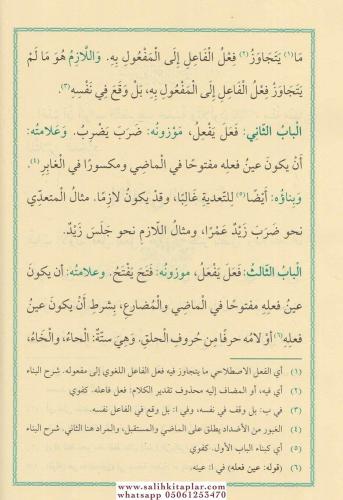 مَا(١) يَتَجَاوَزُ(٢) فِعْلُ الْفَاعِلِ إِلَى الْمَفْعُولِ بِهِ. وَاللَّازِمُ هُوَ مَا لَمْ
يَتَجَاوَزْ فِعْلُ الْفَاعِلِ إِلَى الْمَفْعُولِ بِهِ، بَلْ وَقَعَ فِي نَفْسِهِ(٣).
الْبابُ الثَّانِي: فَعَلَ يَفْعِلُ، مَوْزونُه: ضَرَبَ يَضْرِبُ. وَعَلامتُه:
أَنْ يكونَ عينُ فعلِه مفتوحًا في الماضِي ومكسورًا في الْغابِرِ(٤).
وَبِناؤُه: أَيْضًا(٥) لِلتَّعديةِ غَالِبًا، وقدْ يكونُ لازِمًا. مثالُ المتعدِّي
نحو ضَرَبَ زَيْدٌ عَمْرًا، ومثالُ اللَّازِمِ نحو جَلَسَ زَيْدٌ.
الْبابُ الثَّالثُ: فَعَلَ يَفْعَلُ، موزونُه: فَتَحَ يَفْتَحُ. وعلامتُه: أن يكونَ
عينُ فعلِهِ مفتوحًا في الْماضِي والْمُضارِعِ، بِشرطِ أَنْ يكونَ عينُ
فعلِهِ(٦) أوْ لامُه حرفًا مِن حُروفِ الْحلقِ. وَهِيَ ستَّةٌ: الْحاءُ، والْخَاءُ،
(١) أي الفعل الاصطلاحي ما يتجاوز فيه فعل الفاعل اللغوي إلى مفعوله. شرح البناء
(٢) أي فيه، أو المضاف إليه محذوف تقدير الكلام: فعل فاعله. كفوي
(٣) في ب: بل وقف في نفسه، وفي أ: بل وقع في الفاعل نفسه.
(٤) الغبور من الأضداد يطلق على الماضي والمستقبل، والمراد هنا الثاني. شرح البناء
(٥) أي كبناء الباب الأول. كفوي
(٦) (قوله: عين فعله) في أ: عينه.
www.salihkitaplar.com
whatsapp 05061253470